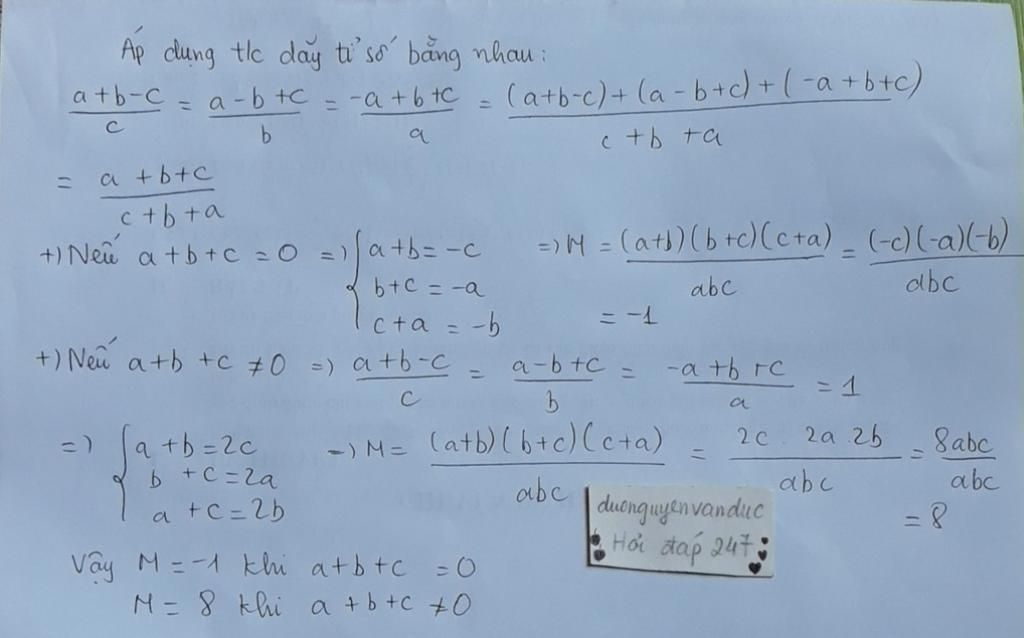 Áp dụng t/c dãy tỉ số bằng nhau:
(a+b-c)/c = (a-b+c)/b = (-a+b+c)/a = ((a+b-c)+(a-b+c)+(-a+b+c))/(c+b+a)
= (a+b+c)/(c+b+a)
+) Nếu a+b+c=0 => { a+b=-c => M = (a+b)(b+c)(c+a)/abc = (-c)(-a)(-b)/abc
b+c=-a
c+a=-b = -1
+) Nếu a+b+c≠0 => (a+b-c)/c = (a-b+c)/b = (-a+b+c)/a = 1
=> { a+b=2c -> M = (a+b)(b+c)(c+a)/abc = 2c.2a.2b/abc = 8abc/abc
b+c=2a
a+c=2b = 8
duonguyenvanduc
Hỏi đáp 247
Vậy M=-1 khi a+b+c=0
M=8 khi a+b+c≠0